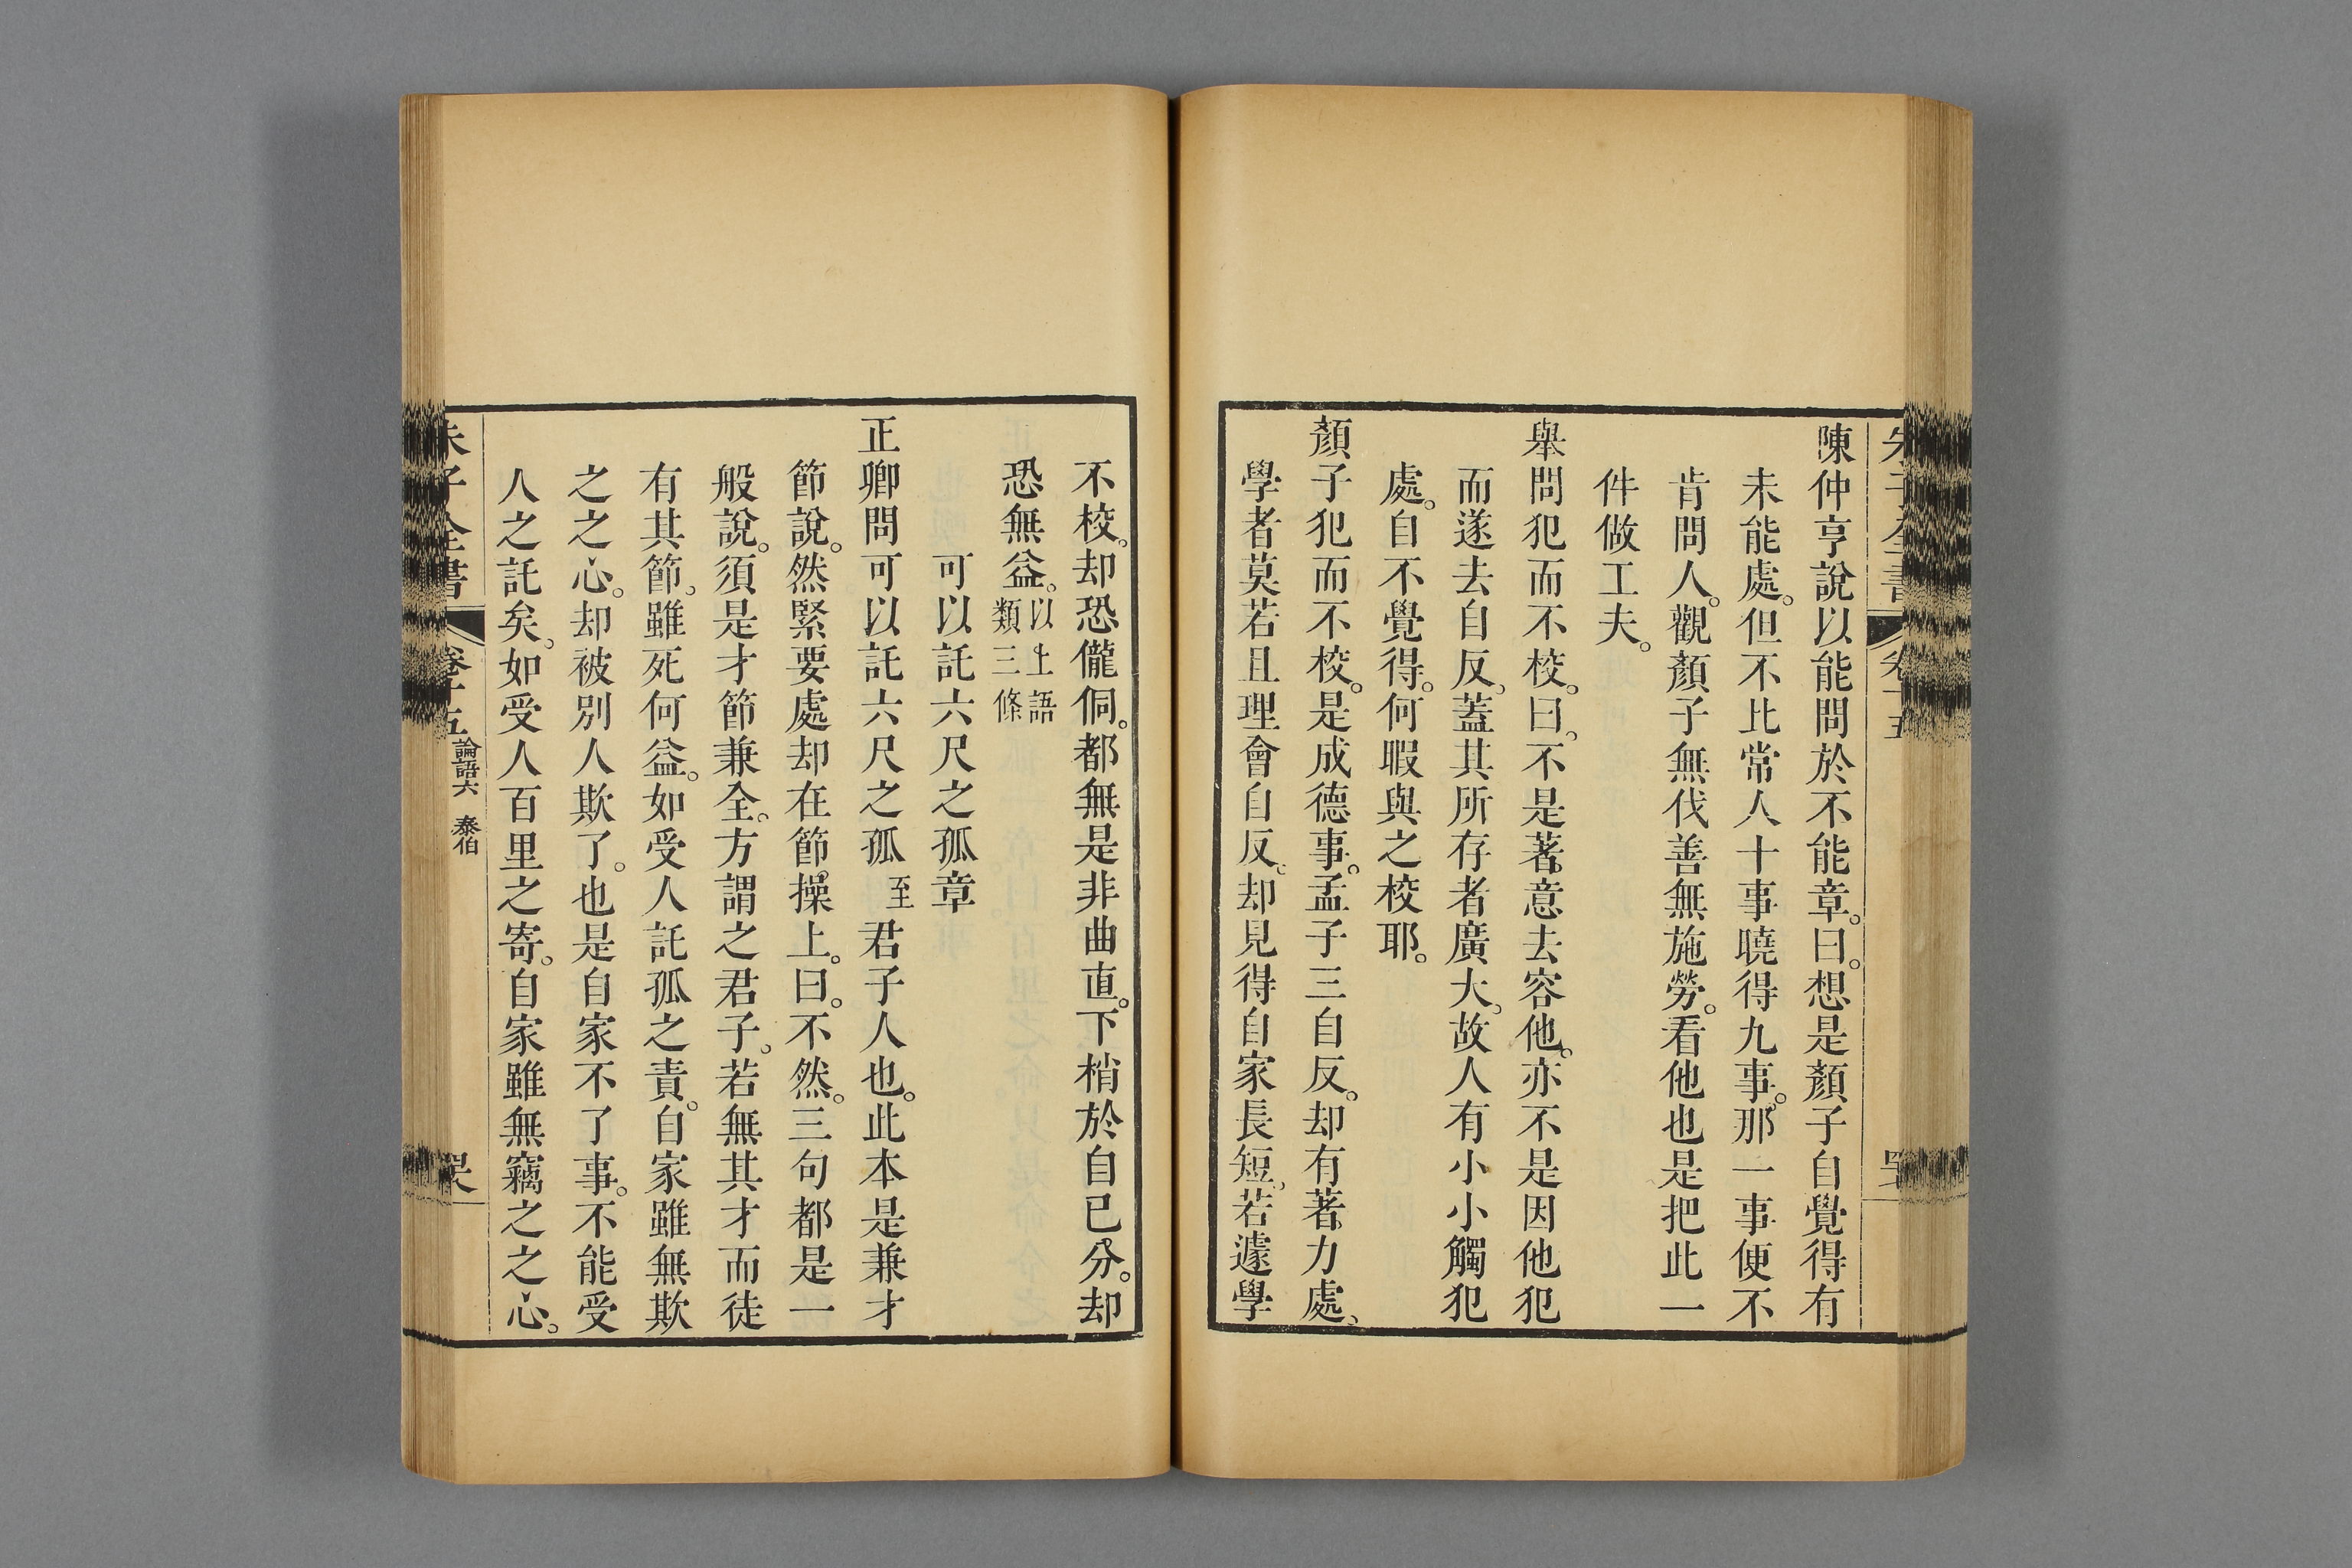 陳仲亨說以能問於不能章。曰。想是顏子自覺得有
未能處。但不比常人十事曉得九事。那一事便不
肯問人。觀顏子無伐善無施勞。看他也是把此一
件做工夫。
舉問犯而不校。曰、不是著意去容他。亦不是因他犯
而遂去自反、蓋其所存者廣大、故人有小小觸犯
處。自不覺得。何暇與之校耶。
顏子犯而不校。是成德事。孟子三自反。却有著力處、
學者莫若且理會自反、却見得自家長短、若遽學
不校、却恐儱侗。都無是非曲直。下梢於自已分。却
恐無益。以上語類三條
可以託六尺之孤章
正卿問可以託六尺之孤至君子人也。此本是兼才
節說。然緊要處却在節操上。曰。不然。三句都是一
般說。須是才節兼全。方謂之君子。若無其才而徒
有其節、雖死何益。如受人託孤之責。自家雖無欺
之之心。却被別人欺了。也是自家不了事。不能受
人之託矣、如受人百里之寄。自家雖無竊之之心。
朱子全書 卷十五 論語六 泰伯